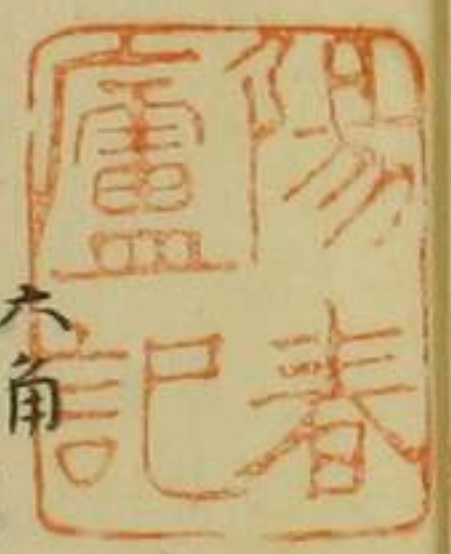 陽春
廬記
六角